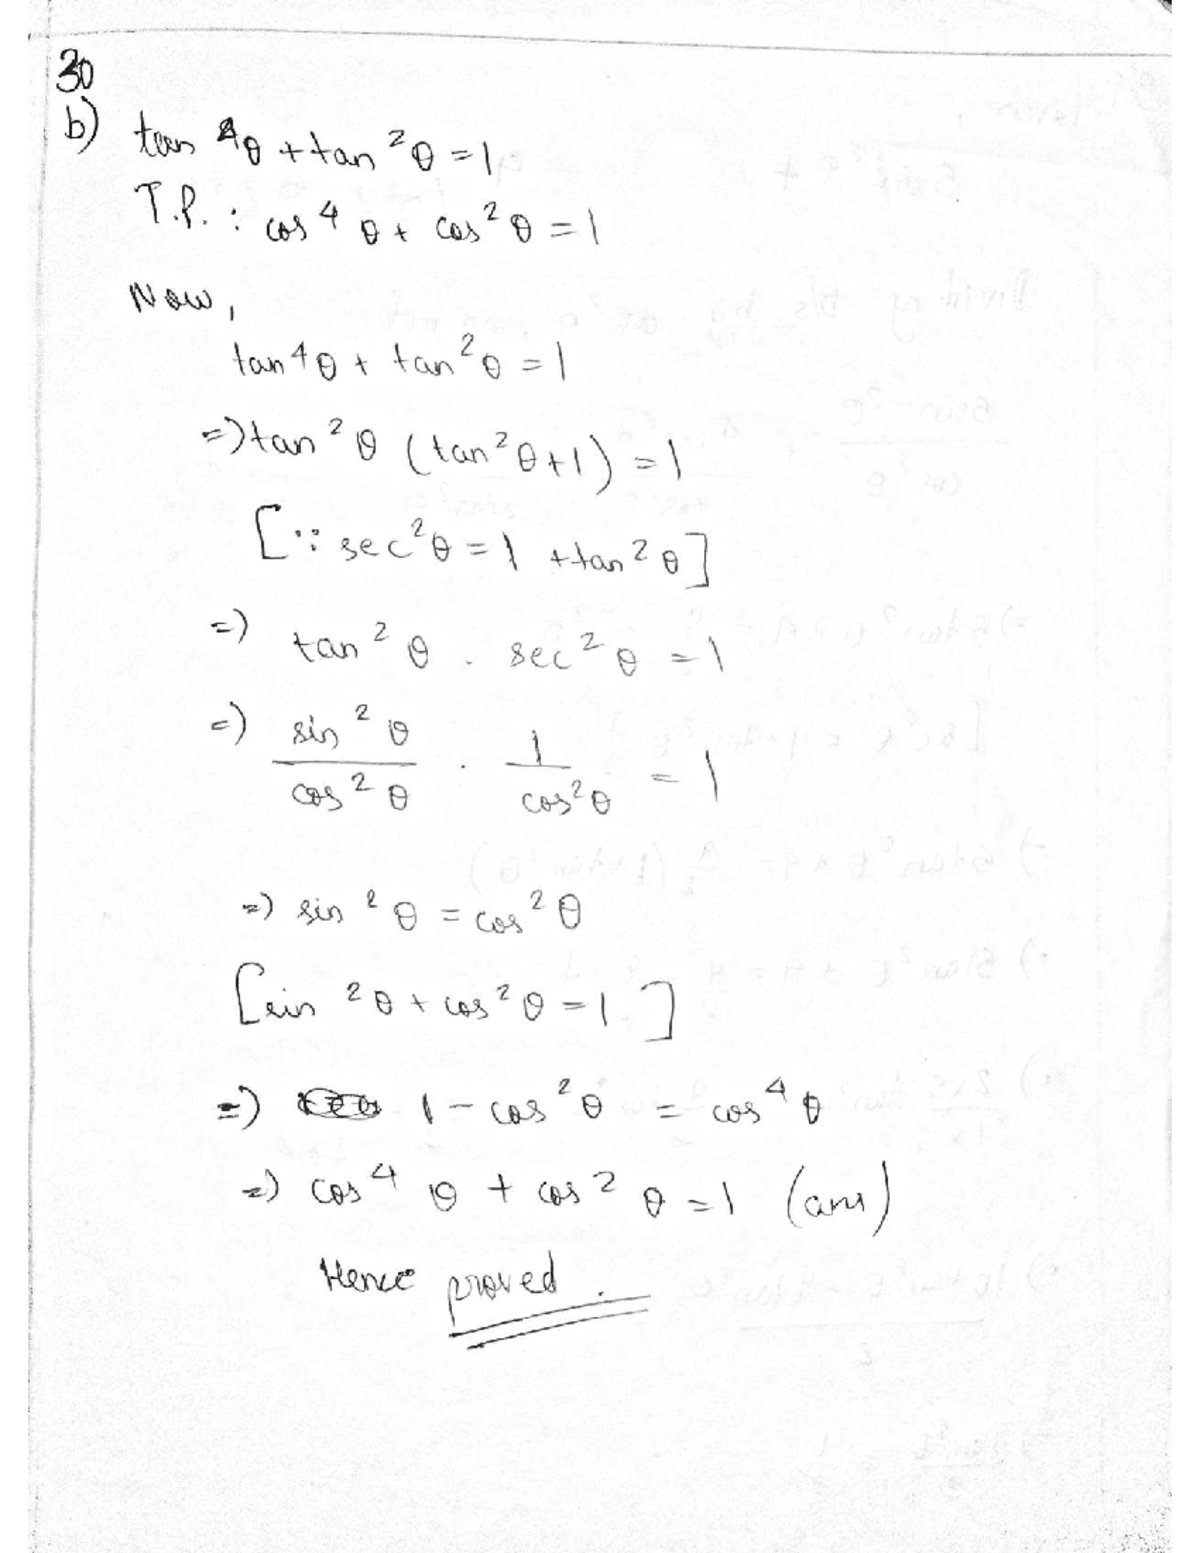 30
b) tan 4θ + tan ²θ = 1
T.P. : cos 4 θ + cos² θ = 1
Now,
tan 4 θ + tan ²θ = 1
=) tan ² θ ( tan²θ + 1 ) = 1
[∵ sec²θ = 1 + tan ² θ ]
=) tan ² θ . sec ² θ = 1
=) sin ² θ / cos ² θ . 1 / cos²θ = 1
=) sin ² θ = cos ² θ
[ sin ² θ + cos ² θ = 1 ]
=) 1 - cos ²θ = cos ⁴ θ
=) cos ⁴ θ + cos ² θ = 1 (ans)
Hence proved .